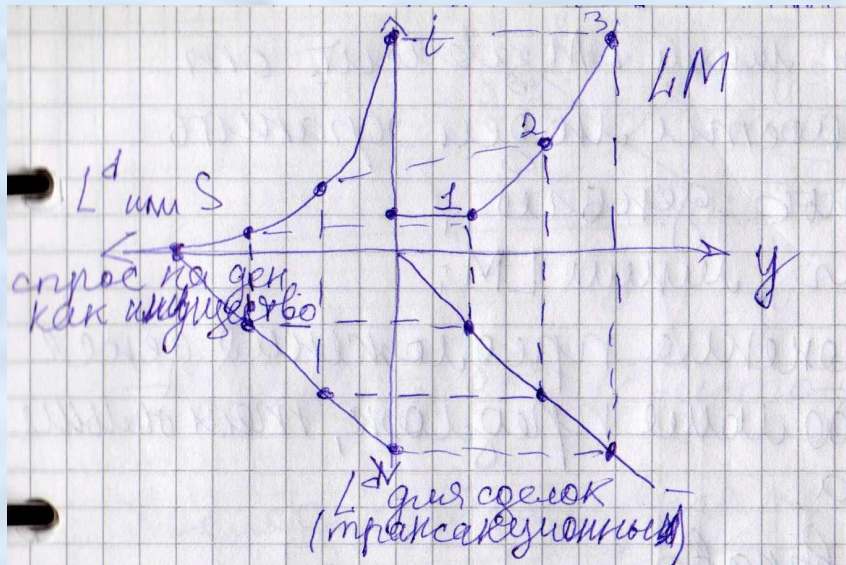 i
3
LM
2
L^d или S
1
y
спрос на ден
как имущество
L^d для сделок
(трансакционный)